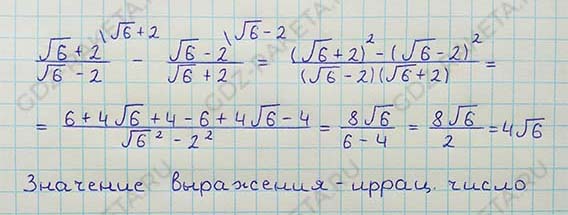 (√6 + 2)/(√6 - 2) \√6+2 - (√6 - 2)/(√6 + 2) \√6-2 = ((√6+2)² - (√6-2)²)/((√6-2)(√6+2)) =
= (6+4√6+4-6+4√6-4)/(√6² - 2²) = 8√6/(6-4) = 8√6/2 = 4√6
Значение выражения - иррац. число